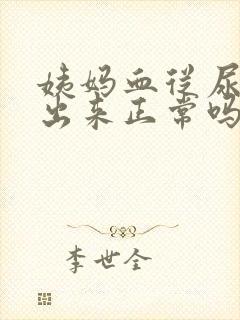 姨妈血从尿
出来正常吗
李世全